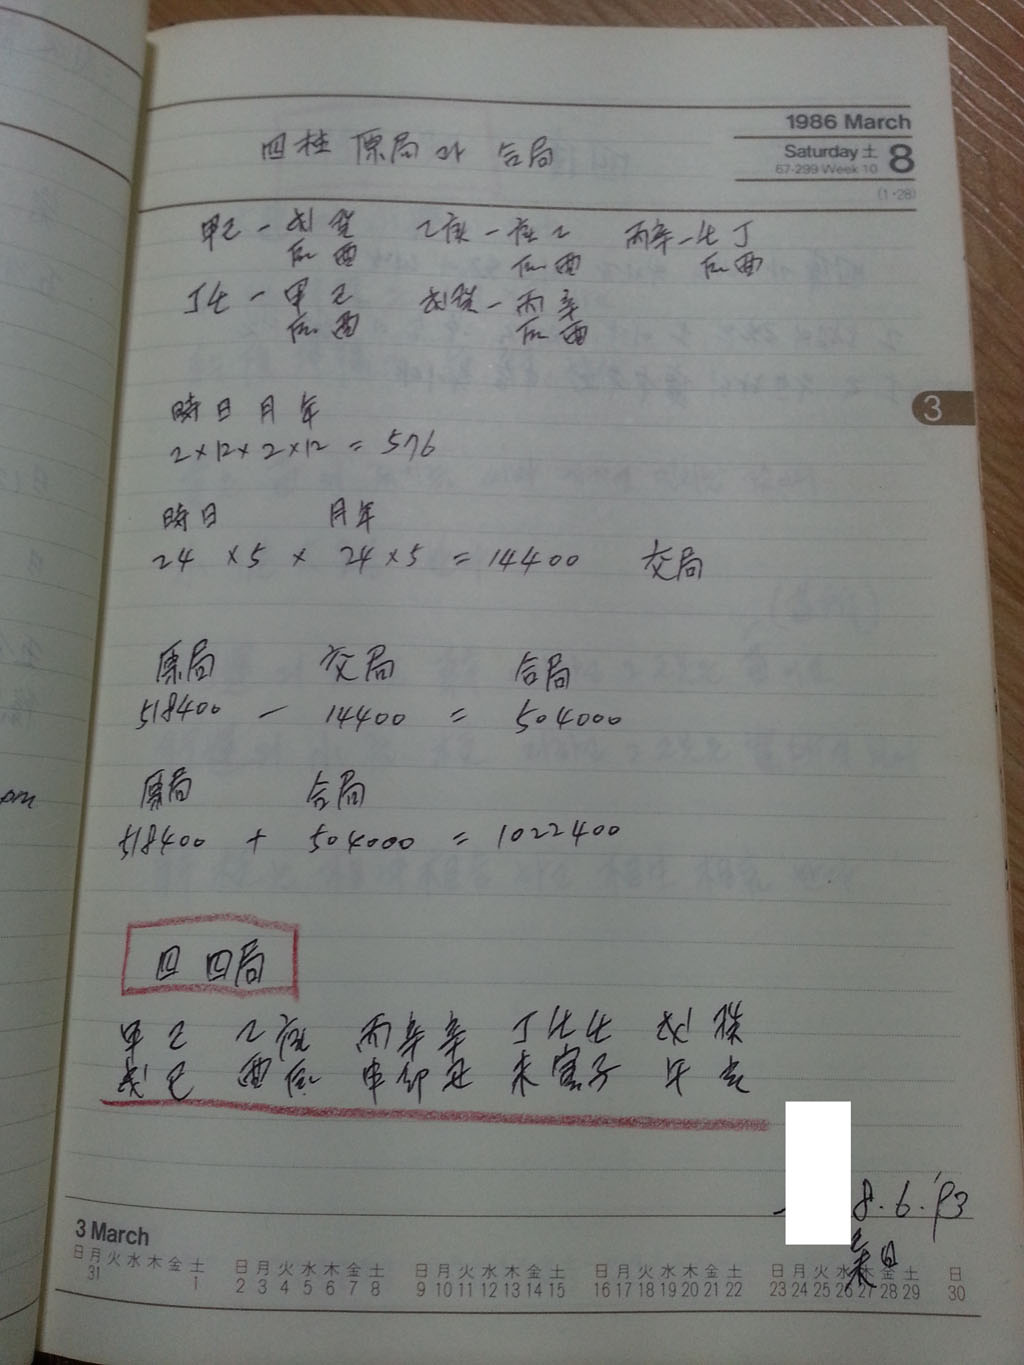 1986 March
Saturday 土 8
67-299 Week 10
(1·28)
四柱 原局과 合局
甲己 - 戊癸 乙庚 - 庚乙 丙辛 - 壬丁
辰酉 辰酉 辰酉
丁壬 - 甲己 戊癸 - 丙辛
辰酉 辰酉
3
時日月年
2×12×2×12 = 576
時日 月年
24 ×5 × 24×5 = 14400 交局
原局 交局 合局
518400 - 14400 = 504000
原局 合局
518400 + 504000 = 1022400
四四局
甲己 乙庚 丙辛辛 丁壬壬 戊癸
戌巳 酉辰 申卯丑 未寅子 午亥
8.6.'93
3 March
日月火水木金土 日月火水木金土 日月火水木金土 日月火水木金土 日月火水木金土 日
31 1 2 3 4 5 6 7 8 9 10 11 12 13 14 15 16 17 18 19 20 21 22 23 24 25 26 27 28 29 30